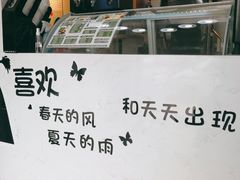 喜欢
春天的风
夏天的雨
和天天出现